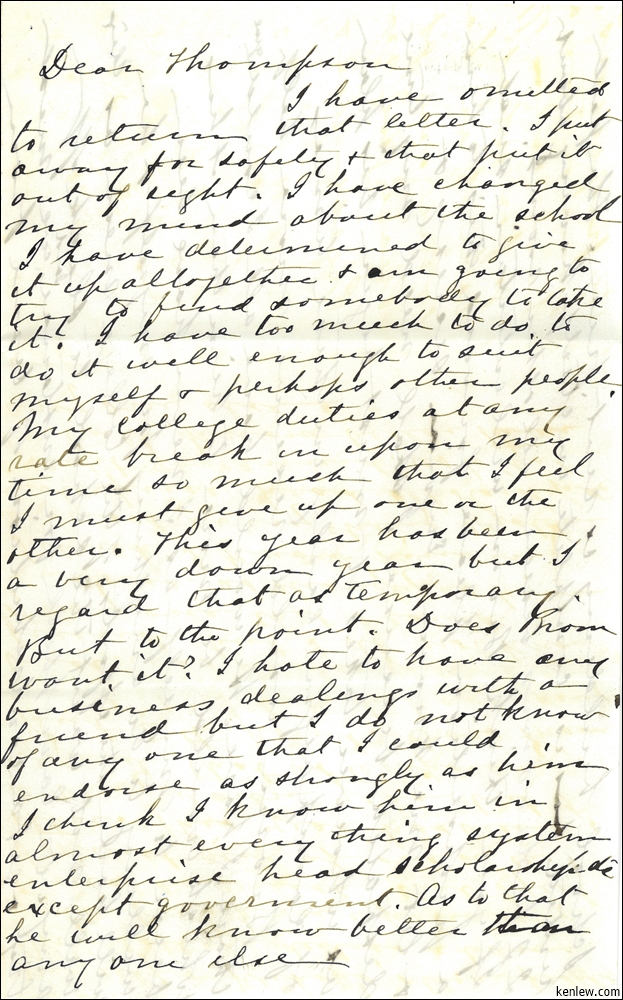 Dear Thompson
I have omitted
to return that letter. I put
away for safety & that put it
out of sight. I have changed
my mind about the school
I have determined to give
it up altogether & am going to
try to find somebody to take
it. I have too much to do to
do it well enough to suit
myself & perhaps other people.
My college duties at any
rate break in upon my
time so much that I feel
I must give up one or the
other. This year has been
a very down year but I
regard that as temporary.
But to the point. Does
want it? I hate to have any
business dealings with a
friend but I do not know
of any one that I could
endorse as strongly as him
I think I know him in
almost every thing system
enterprise head scholarship &c
except goverment. As to that
he will know better than
any one else
kenlew.com